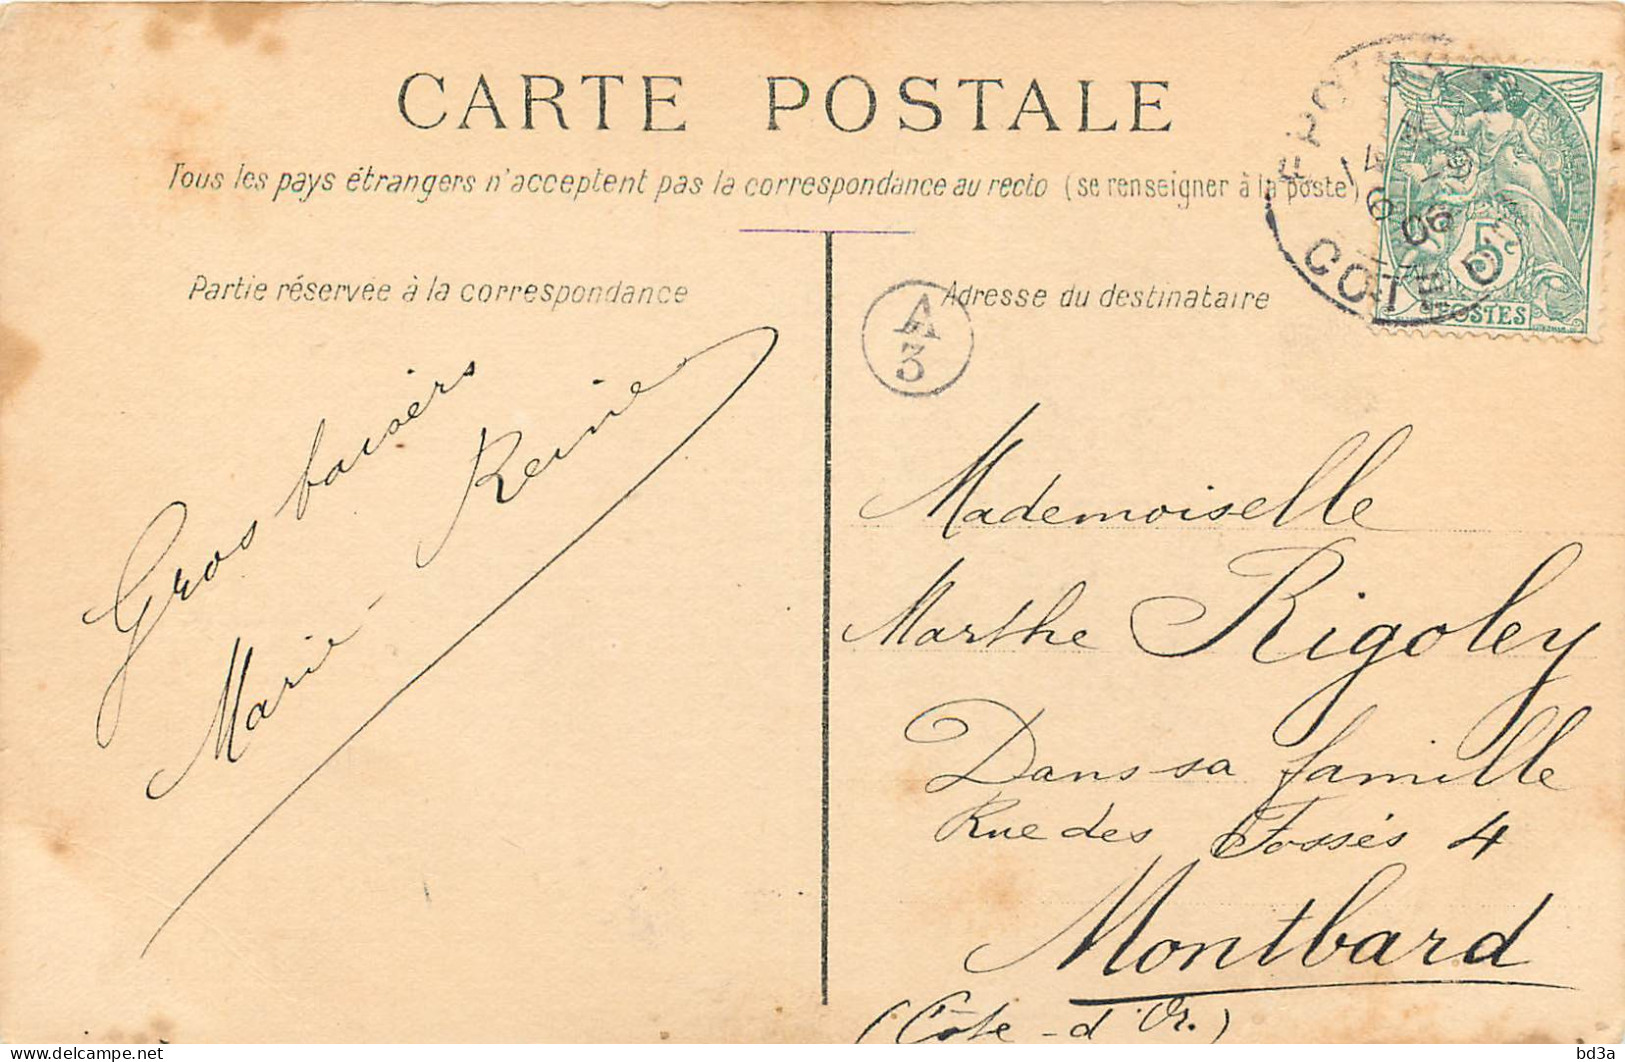 CARTE POSTALE
Tous les pays étrangers n'acceptent pas la correspondance au recto (se renseigner à la poste)
Partie réservée à la correspondance
Adresse du destinataire
A
3
5c
POSTES
Gros baisers
Marie Reine
Mademoiselle
Marthe Rigoley
Dans sa famille
Rue des Fossés 4
Montbard
(Côte-d'Or.)
bd3a